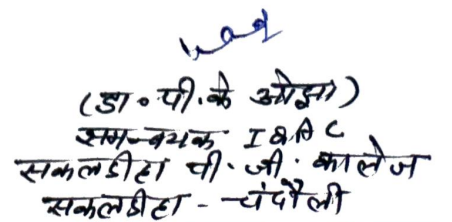 (डा० पी. के ओझा)
समन्वयक IQAC
सकलडीहा पी. जी. कालेज
सकलडीहा - चंदौली